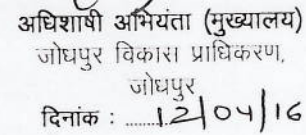 अधिशाषी अभियंता (मुख्यालय)
जोधपुर विकास प्राधिकरण,
जोधपुर
दिनांक : ........12/04/16